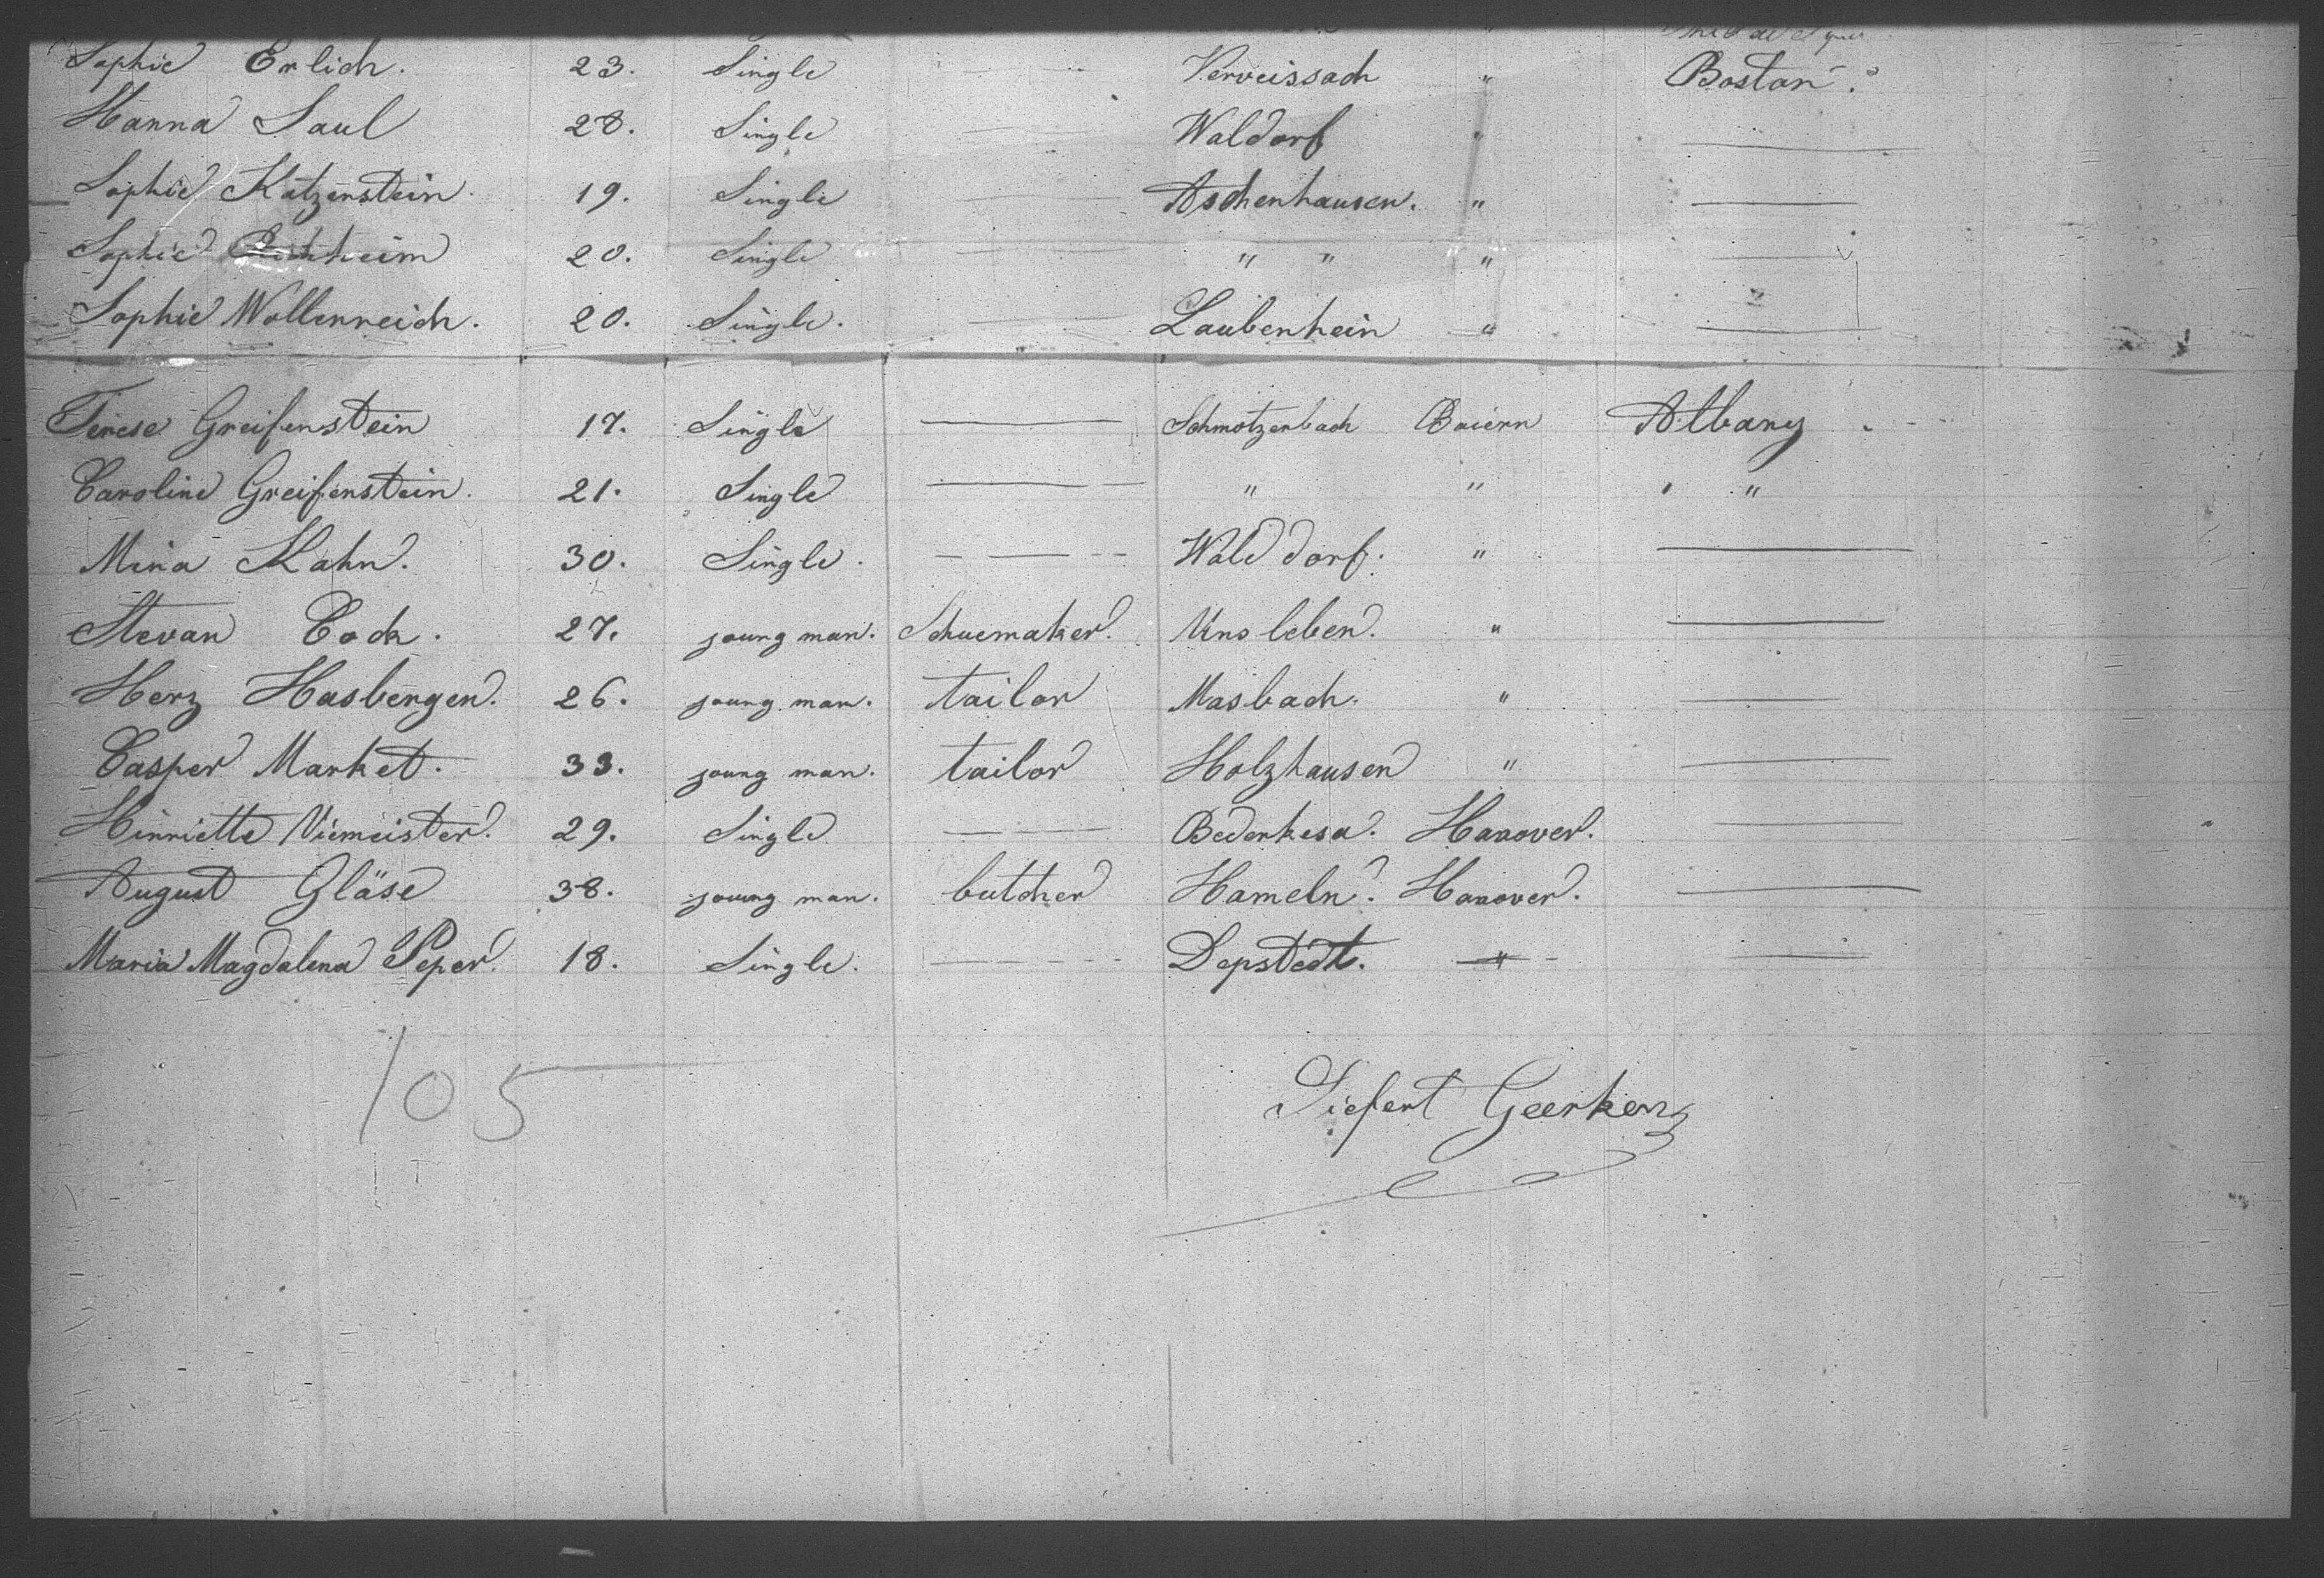 Sophie Erlich. 23. Single Verveissach " Boston.
Hanna Saul 28. Single Waldorf "
Sophie Katzenstein. 19. Single Aschenhausen. "
Sophie 20. Single " " "
Sophie Wollenreich. 20. Single. Laubenhein "
Terese Greifenstein 17. Single Schmotzenbach Baiern Albany
Caroline Greifenstein. 21. Single " " "
Mina Kahn. 30. Single. Wald dorf. "
Stevan Cock. 27. young man. Schuemaker. Unsleben. "
Herz Hasbergen. 26. young man. tailor Masbach. "
Casper Market. 33. young man. tailor Holzhausen "
Hinriette Niemeister. 29. Single Bederkesa. Hanover.
August Gläse 38. young man. butcher Hameln. Hanover.
Maria Magdalena Peper. 18. Single. Depstedt. "
105
Siefert Geerken